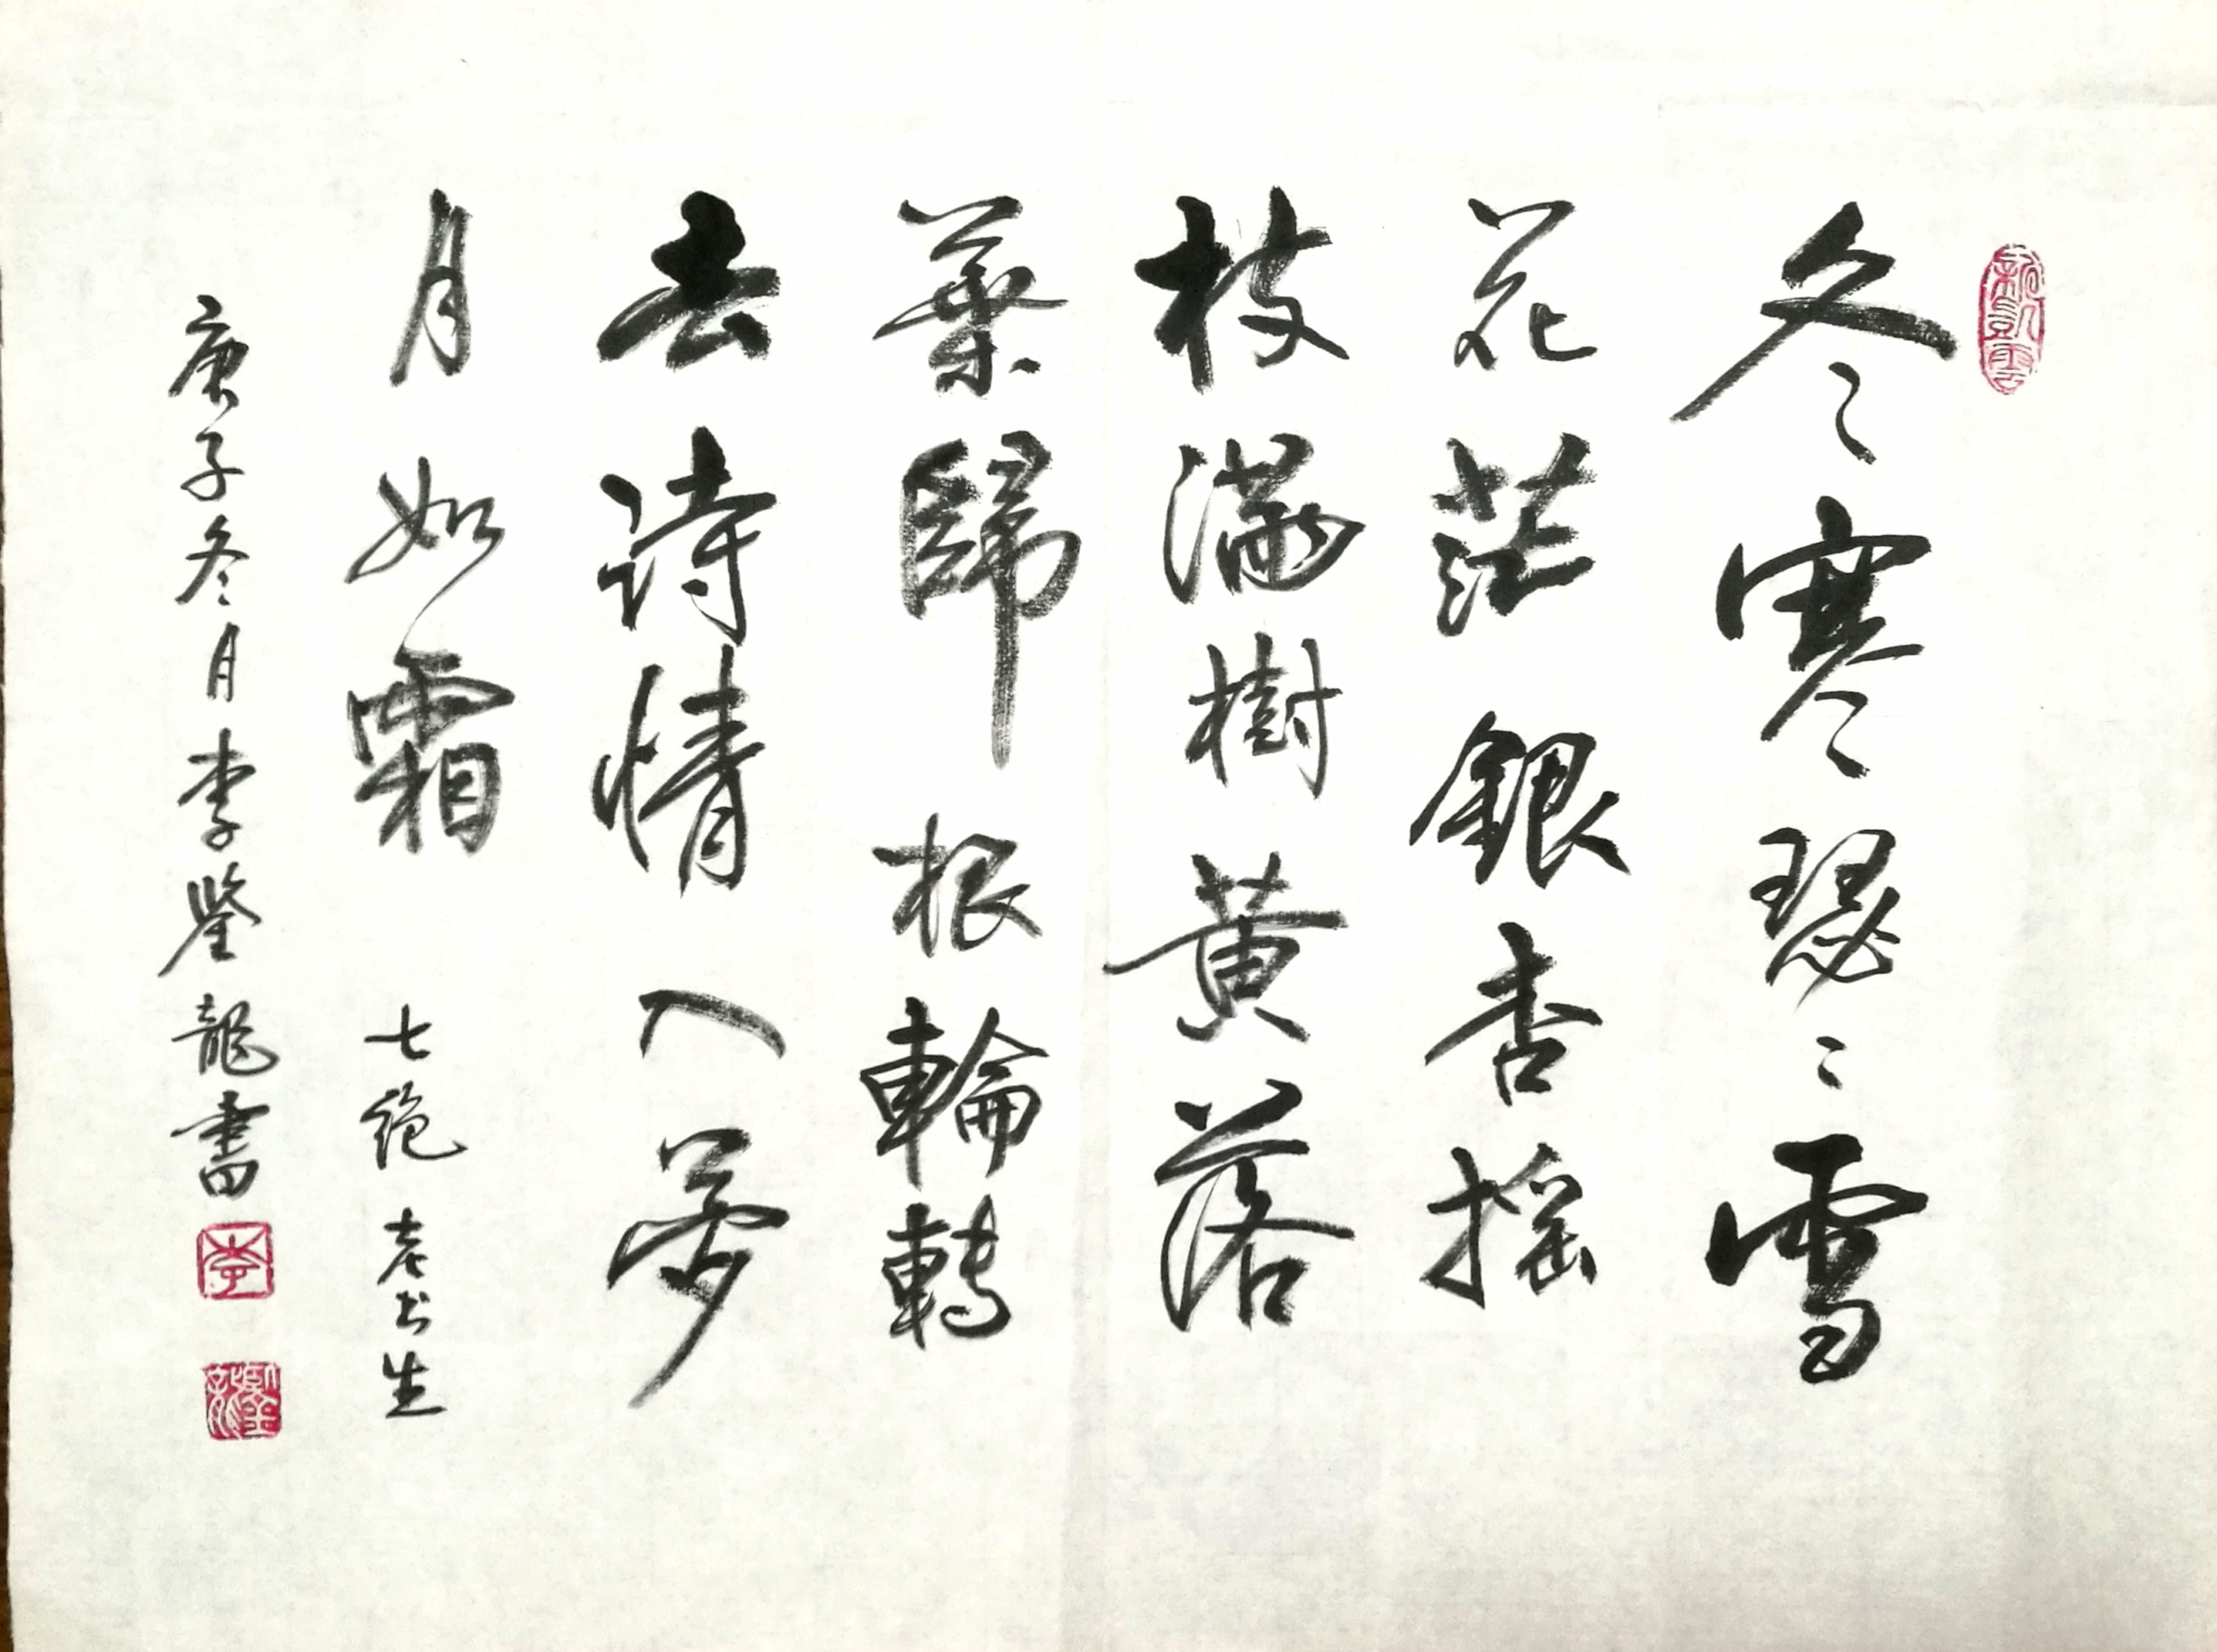 冬寒瑟〻雪
花茫銀杏搖
枝滿樹黃落
葉歸根輪轉
去诗情入夢
月如霜
七绝 老书生
庚子冬月李鑒龍書
李
鑒龍